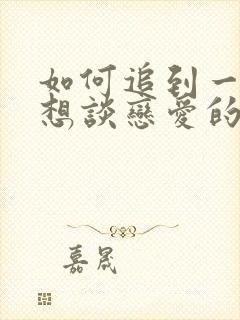 如何追到一
想談戀愛的
嘉晟